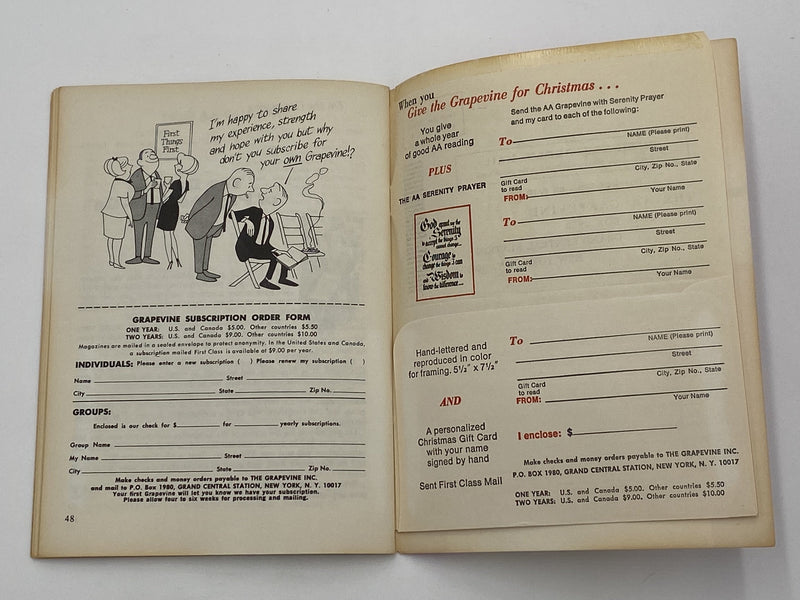 First
Things
First
I'm happy to share
my experience, strength
and hope with you but why
don't you subscribe for
your own Grapevine!?
GRAPEVINE SUBSCRIPTION ORDER FORM
ONE YEAR: U.S. and Canada $5.00. Other countries $5.50
TWO YEARS: U.S. and Canada $9.00. Other countries $10.00
Magazines are mailed in a sealed envelope to protect anonymity. In the United States and Canada,
a subscription mailed First Class is available at $9.00 per year.
INDIVIDUALS: Please enter a new subscription ( ) Please renew my subscription ( )
Name Street
City State Zip No.
GROUPS:
Enclosed is our check for $ for yearly subscriptions.
Group Name
My Name Street
City State Zip No.
Make checks and money orders payable to THE GRAPEVINE INC.
and mail to P.O. Box 1980, GRAND CENTRAL STATION, NEW YORK, N. Y. 10017
Your first Grapevine will let you know we have your subscription.
Please allow four to six weeks for processing and mailing.
48
When you
Give the Grapevine for Christmas . . .
You give
a whole year
of good AA reading
PLUS
THE AA SERENITY PRAYER
God grant me the
Serenity
to accept the things I
cannot change...
Courage to
change the things I can
and Wisdom to
know the difference...
Hand-lettered and
reproduced in color
for framing. 5½" x 7½"
AND
A personalized
Christmas Gift Card
with your name
signed by hand
Sent First Class Mail
Send the AA Grapevine with Serenity Prayer
and my card to each of the following:
To
NAME (Please print)
Street
City, Zip No., State
Gift Card
to read
FROM:
Your Name
To
NAME (Please print)
Street
City, Zip No., State
Gift Card
to read
FROM:
Your Name
To
NAME (Please print)
Street
City, Zip No., State
Gift Card
to read
FROM:
Your Name
I enclose: $
Make checks and money orders payable to THE GRAPEVINE INC.
P.O. BOX 1980, GRAND CENTRAL STATION, NEW YORK, N. Y. 10017
ONE YEAR: U.S. and Canada $5.00. Other countries $5.50
TWO YEARS: U.S. and Canada $9.00. Other countries $10.00